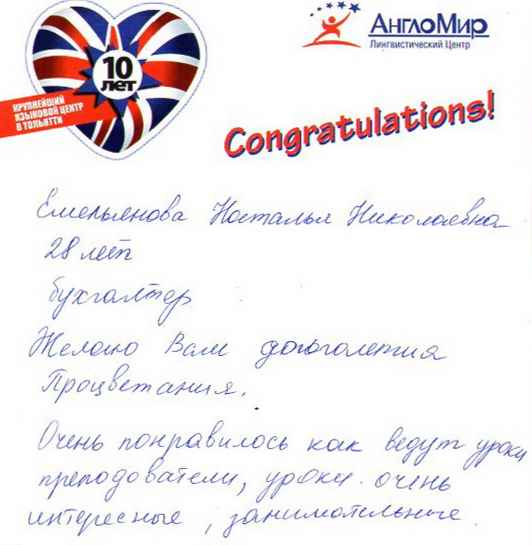 10
лет
КРУПНЕЙШИЙ
ЯЗЫКОВОЙ ЦЕНТР
В ТОЛЬЯТТИ
АНГЛОМИР
Лингвистический Центр
Congratulations!
Емельянова Наталья Николаевна
28 лет
бухгалтер
Желаю Вам долголетия
Процветания.
Очень понравилось как ведут уроки
преподаватели, уроки очень
интересные, занимательные.